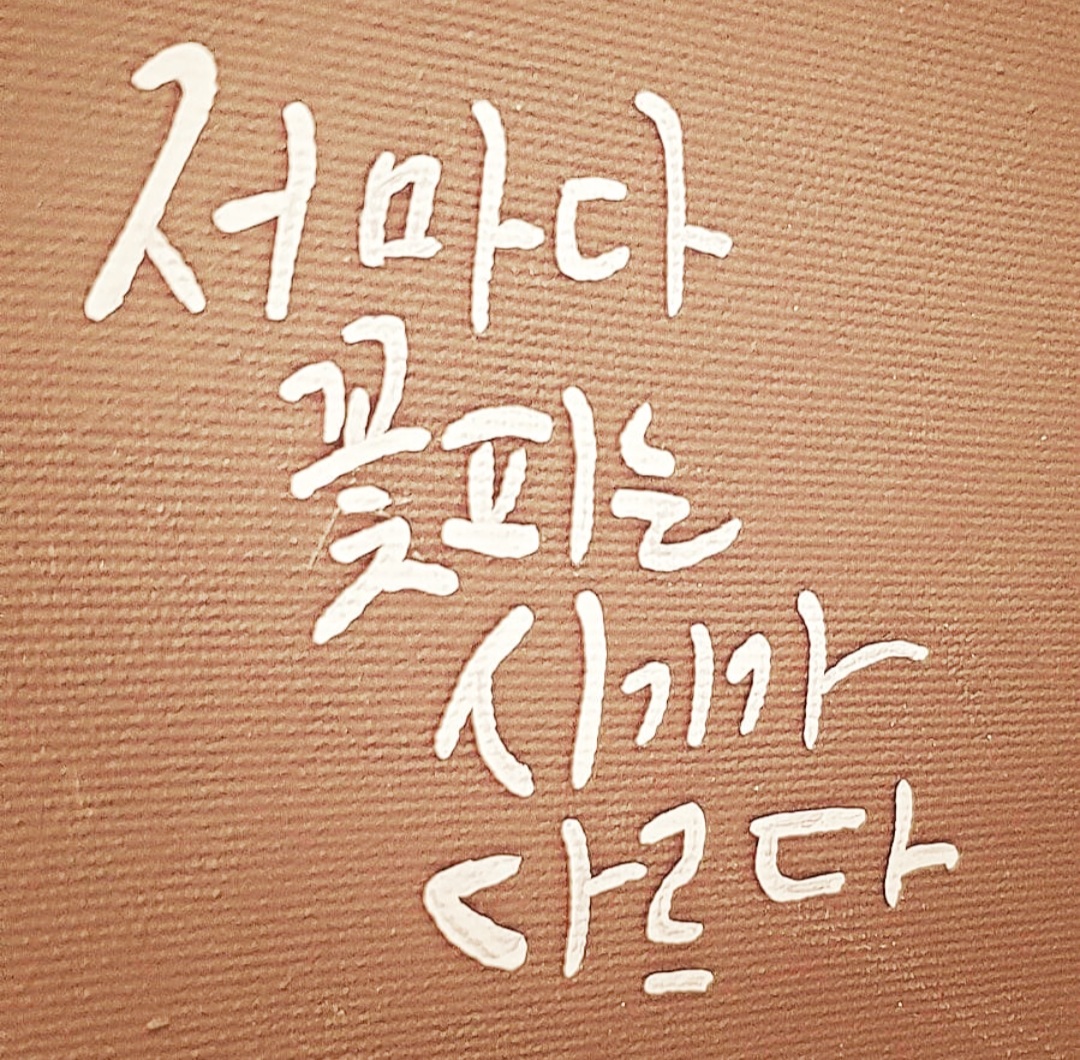 저마다
꽃피는
시기가
다르다